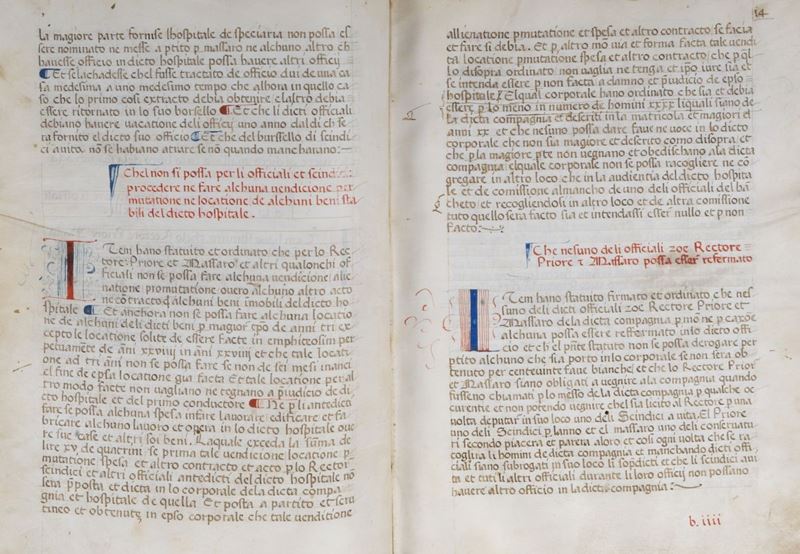 la magiore parte fornise lhospitale de speciaria non possa es
sere nominato ne messe a ptito p massaro ne alchuno altro ch
havesse officio in dicto hospitale possa havere altri officij
¶ Et se lachadesse chel fusse tractato de officio dui de una ca
sa medesima a uno medesimo tempo che alhora in quello ca
so che lo primo cosi extracto debia obtenire elastro debia
essere ritornato in lo suo borsello ¶ Et che li dicti officiali
debiano havere vacatione deli officij uno anno daldi che sa
ra fornito el dicto suo officio ¶ Et che del bursello di scindi
ci avita nō se habiano atrare se nō quando mancharano:
Chel non si possa per li officiali et scindici
procedere ne fare alchuna vendicione per
mutatione ne locatione de alchuni beni sta
bili del dicto hospitale.
Item hano statuito et ordinato che per lo Rec
tore Priore et Massaro et altri qualonchi of
ficiali non se possa fare alchuna vendicione alie
natione promutatione overo alchuno altro acto
ne cōtracto de alchuni beni imobili del dicto ho
spitale ¶ Et anchora non se possa fare alchuna locatio
ne de alchuni deli dicti beni p magior tpo de anni tri ex
cepto le locatione solite de essere facte in emphiteosim per
petuamēte de āni xxviiii in āni xxviiii et che tale locati
one ad tri āni non se possa fare se non de sei mesi inanci
el fine de epsa locatione gia facta Et tale locatione per al
tro modo facte non vagliano ne tegnano a piudicio de di
cto hospitale et del primo conductore ¶ Ne p li antedicti
fare se possa alchuna spesa in fare lavorare edificare et fa
bricare alchuno lavoro et opera in lo dicto hospitale ove
re sue case et altri soi beni. Laquale exceda la sūma de
lire xv de quatrini se prima tale vendicione locatione p
mutatione spesa et altro contracto et acto p lo Rector
scindici et altri officiali antedicti del dicto hospitale nō
sera pposta et dicta in lo corporale dela dicta compa
gnia et hospitale de quella Et posta a partito et scru
tineo et obtenuta in epso corporale che tale venditione
14
allienatione pmutatione et spesa et altro contracto se facia
et fare si debia. Et p altro mō via et forma facta tale vendi
ta locatione pmutatione spesa et altro contracto che p ql
lo disopra ordinato non vaglia ne tenga et ipō iure sia et
se intenda essere p non facta a damno et piudicio de epso
hospitale. Elqual corporale hano ordinato che sia et debia
essere p lo meno in numero de homini xxxx li quali siano de
la dicta compagnia et descriti in la matricola et magiori de
anni xx et che nesuno possa dare fave ne voce in lo dicto
corporale che non sia magiore et descrito como disopra et
che p la magiore pte non vegnano et obedischano ala dicta
compagnia elquale corporale non se possa racogliere ne cō
gregare in altro loco che in la audientia del dicto hospita
le et de comissione almancho de uno deli officiali del bā
cheto et recogliendosi in altro loco et de altra comissione
tuto quello sera facto sia et intendassi esser nullo et p non
facto:
Che nesuno deli officiali zoe Rectore
Priore & Massaro possa esser refermato
Item hano statuito firmato et ordinato che nes
suno deli dicti officiali zoe Rectore Priore et
Massaro dela dicta compagnia p mō ne p caxōe
alchuna possa essere refformato in lo dicto offi
cio et ch el pñte statuto non se possa derogare per
ptito alchuno che sia porto in lo corporale se non sera ob
tenuto per centevinte fave bianche et che lo Rectore Prior
et Massaro siano obligati a vegnire ala compagnia quando
fusseno chiamati p lo messo de la dicta compagnia p qualche oc
curentie et non potendo vegnire chel sia licito al Rectore p una
volta deputar in suo loco uno deli Scindici a vita. El Priore
uno deli Scindici p lanno et el massaro uno deli conservatu
ri secondo piacera et pareia aloro et cosi ogni volta che se ra
cogliera li homini de dicta compagnia et manchando dicti offi
ciali siano subrogati in suo loco li sopdicti et che li scindici avi
ta et tuti li altri officiali durante li loro officij non possano
havere altro officio in la dicta compagnia:
b. iiii